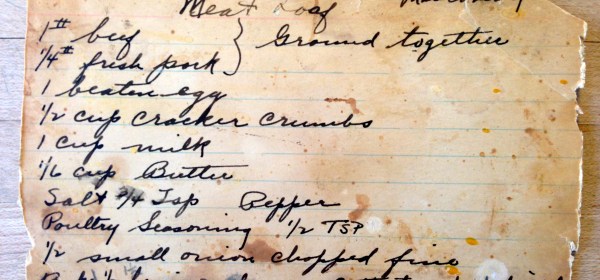 Meat Loaf
1# beef } Ground together
1/4# fresh pork
1 beaten egg
1/2 cup cracker crumbs
1 cup milk
1/6 cup Butter
Salt 3/4 Tsp Pepper
Poultry Seasoning 1/2 TSP
1/2 small onion chopped fine